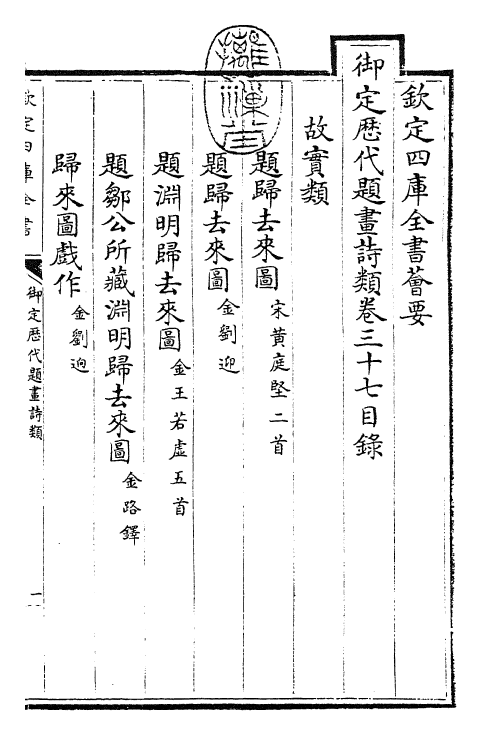 欽定四庫全書薈要
御定歴代題畫詩類卷三十七目錄
故實類
題歸去來圖 宋黄庭堅二首
題歸去來圖 金劉迎
題淵明歸去來圖 金王若虛五首
題鄒公所藏淵明歸去來圖 金路鐸
歸來圖戲作 金劉迎
欽定四庫全書
御定歴代題畫詩類
一